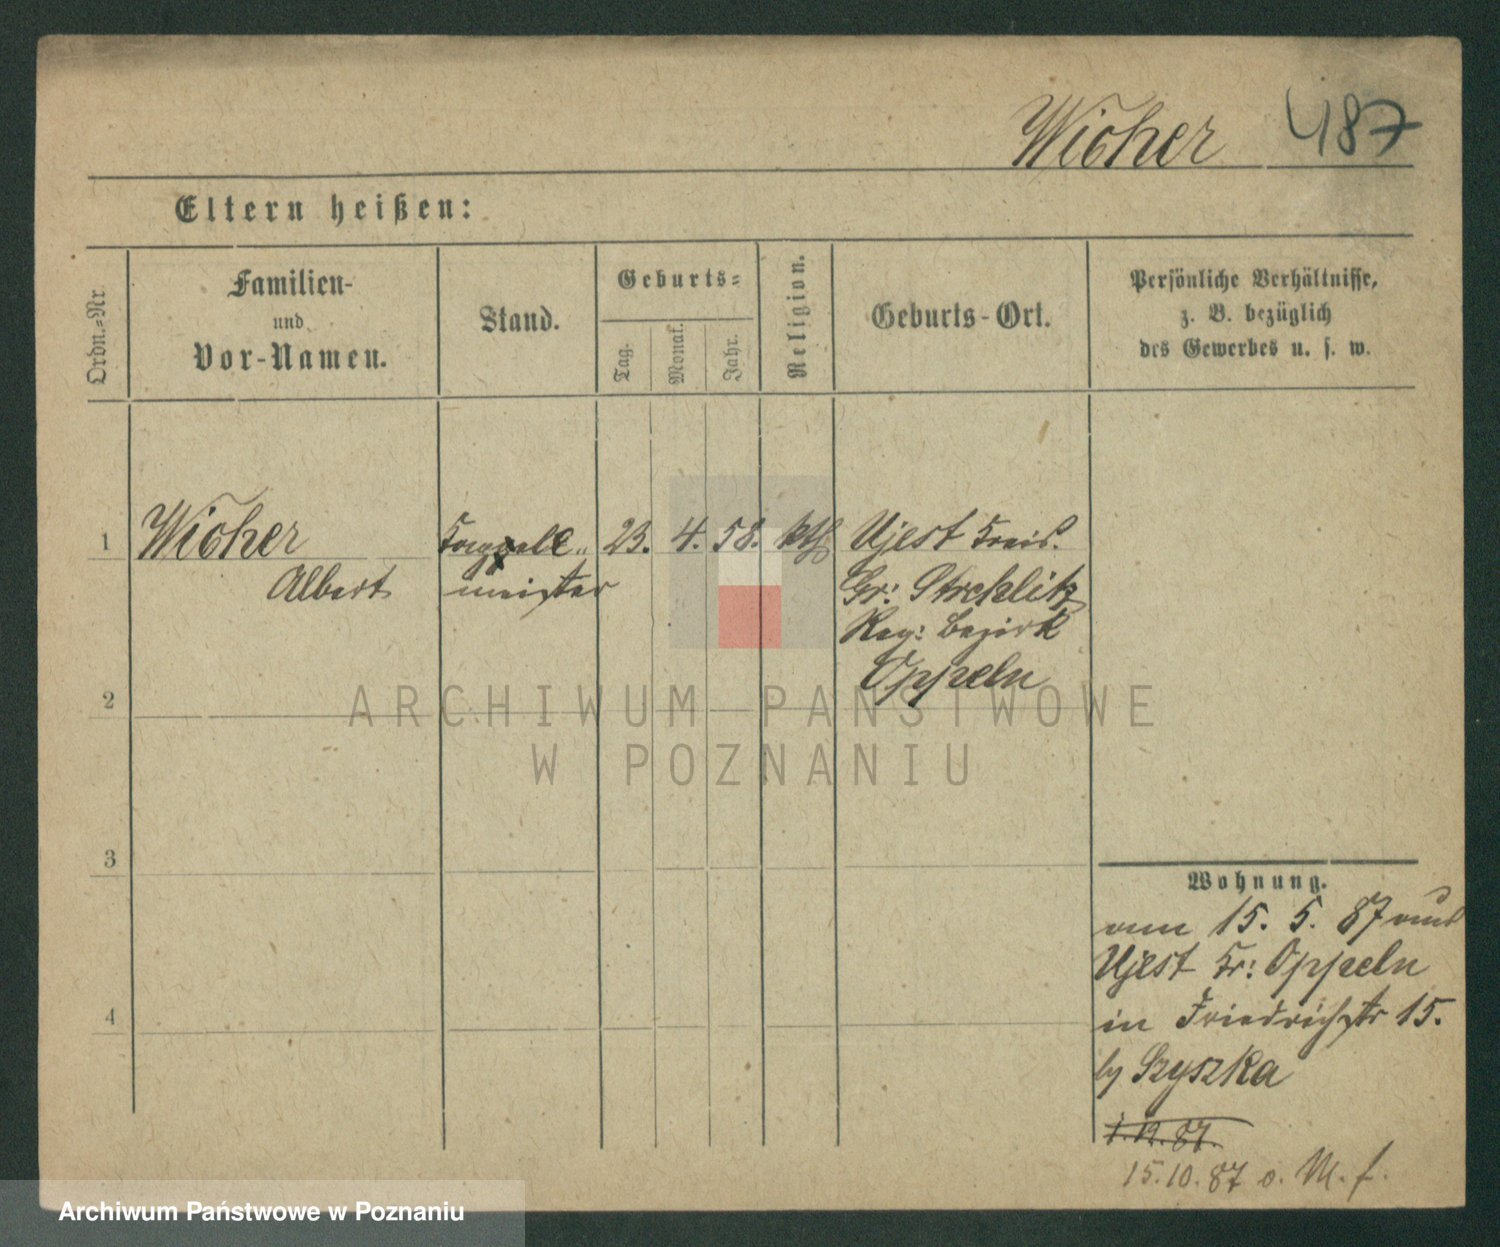 Wicher 487
Eltern heißen:
Ordn.-Nr.
Familien-
und
Vor-Namen.
Stand.
Geburts-
Tag.
Monat.
Jahr.
Religion.
Geburts-Ort.
Persönliche Verhältnisse,
z. B. bezüglich
des Gewerbes u. s. w.
1 Wicher 23. 4. 58. kth Ujest Kreis.
Albert meister Gr: Strehlitz
Reg: Bezirk
Oppeln
2
3
4
ARCHIWUM PAŃSTWOWE
W POZNANIU
Wohnung.
vom 15. 5. 87 aus
Ujest Kr: Oppeln
in Friedrichstr 15.
by Szyszka
1.12.87.
15.10.87 o. M. f.
Archiwum Państwowe w Poznaniu